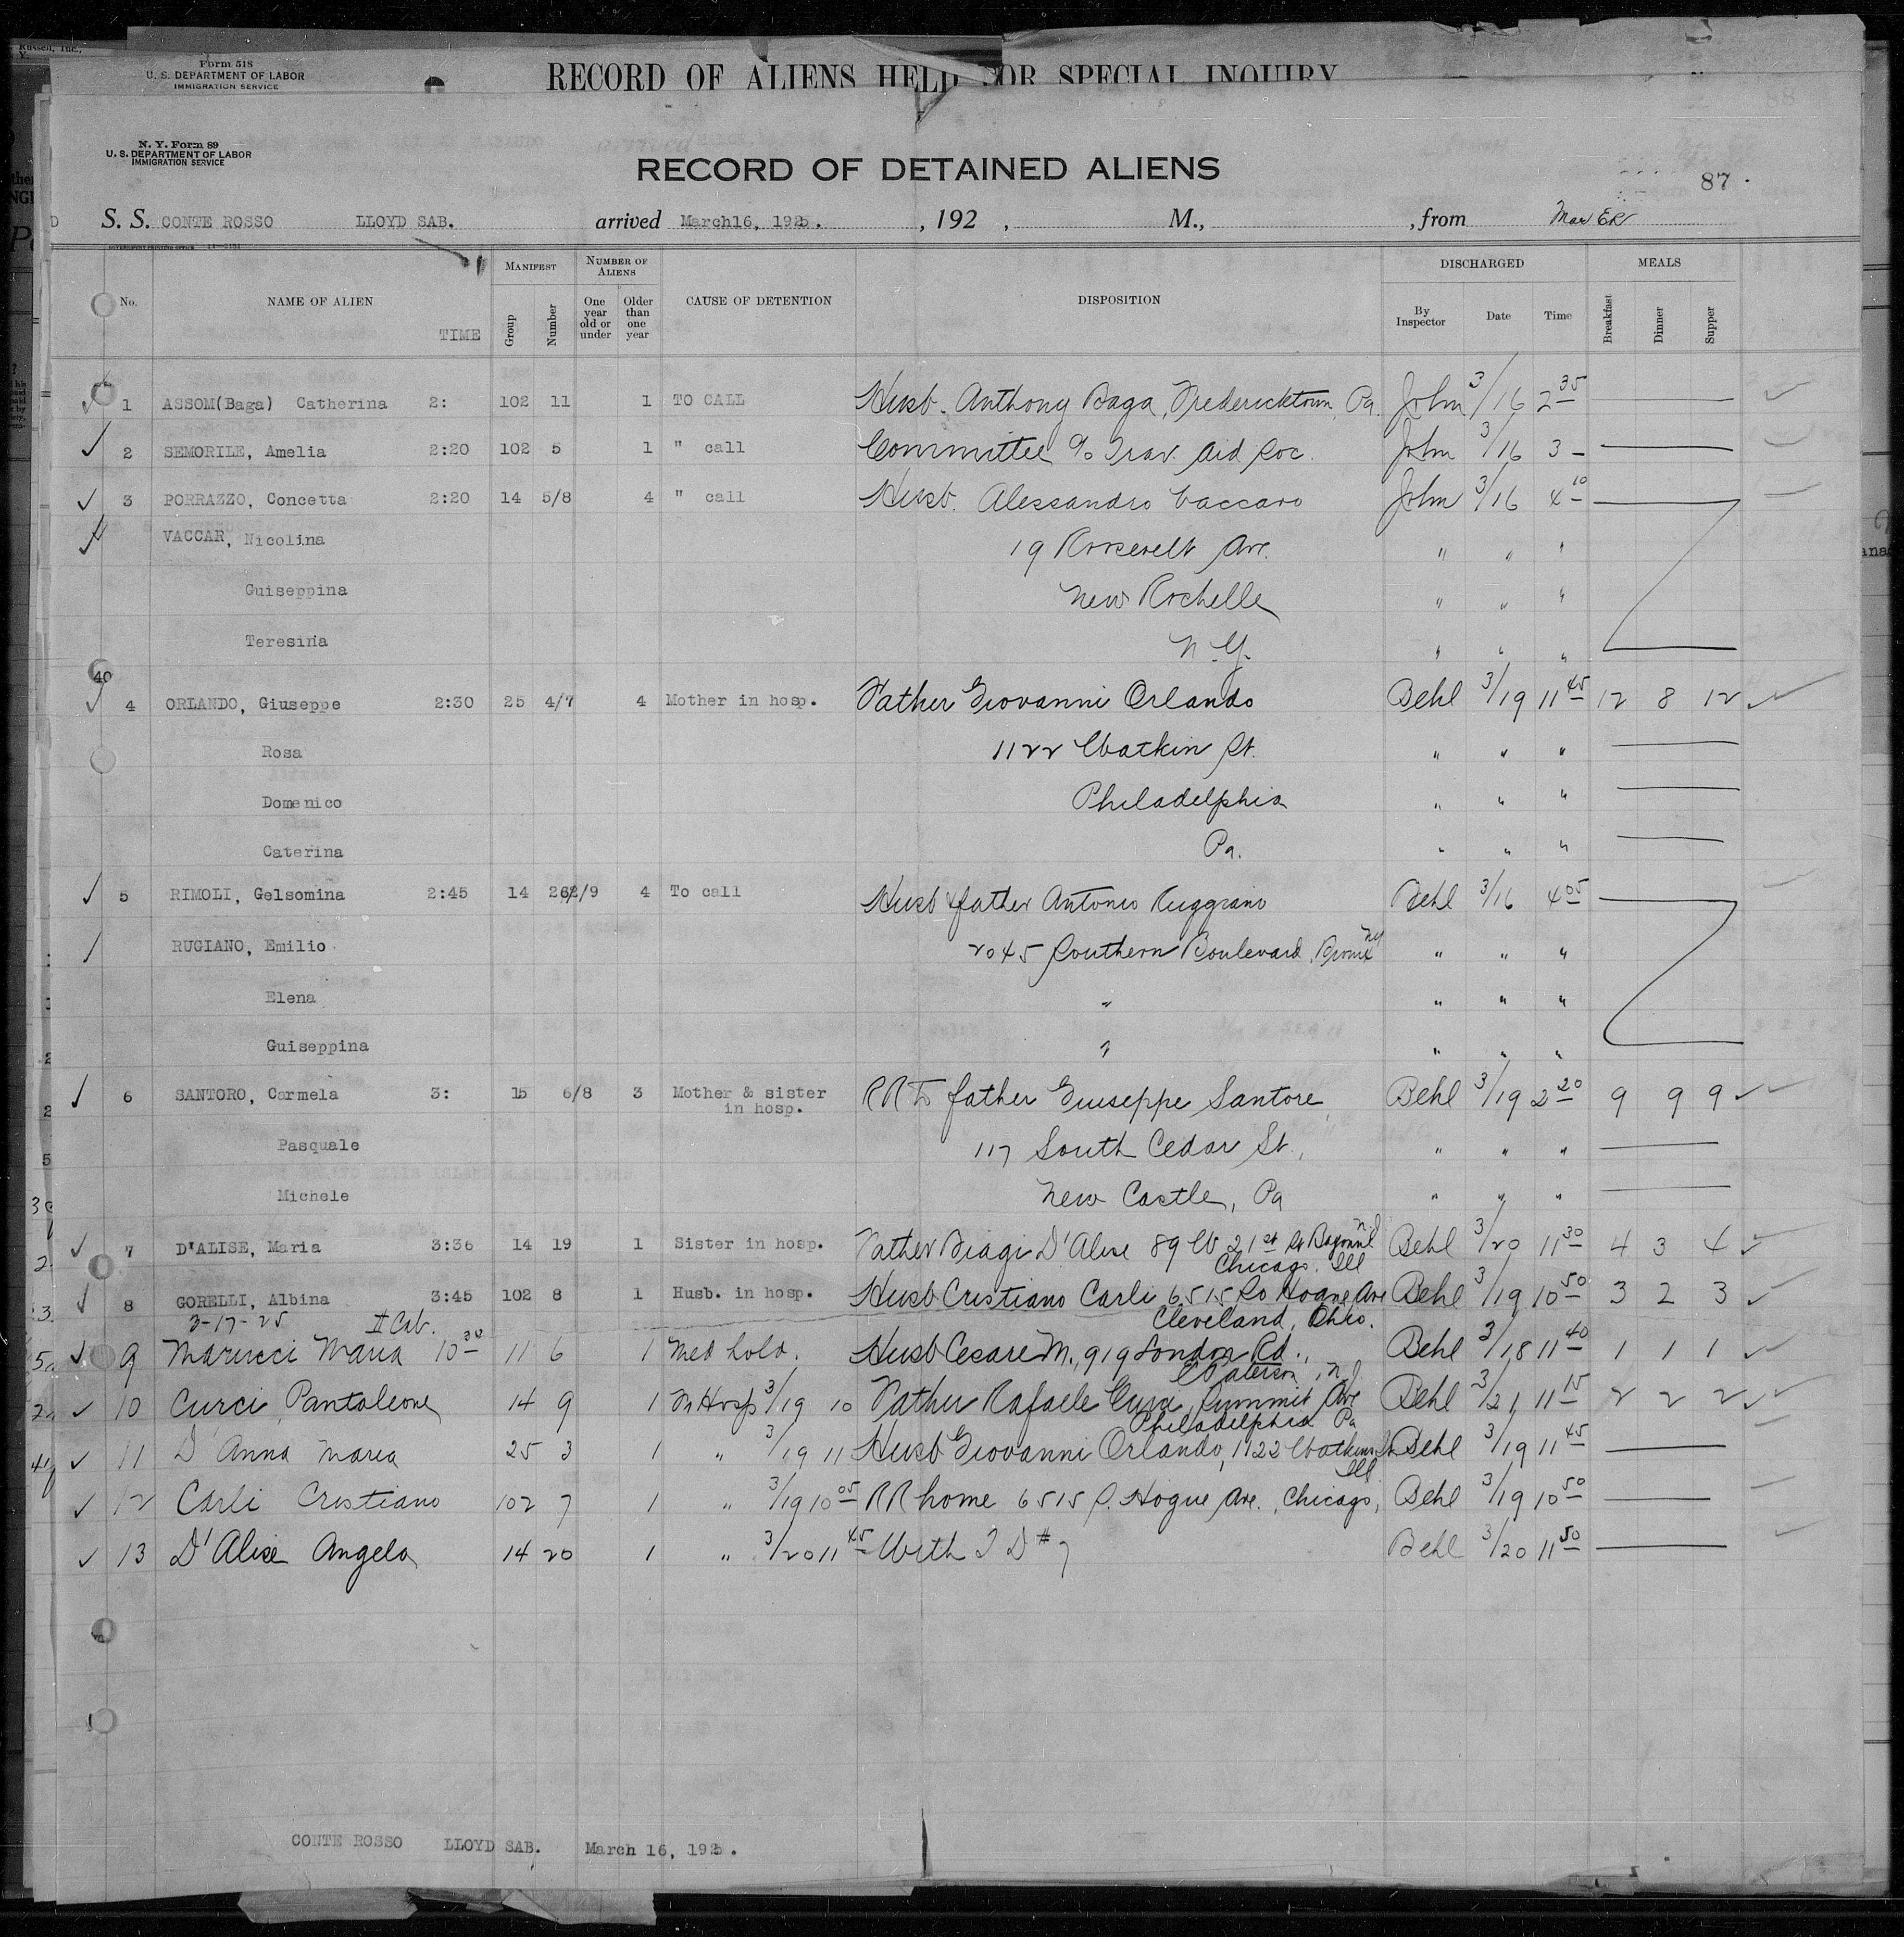 Form 518
U. S. DEPARTMENT OF LABOR
IMMIGRATION SERVICE
RECORD OF ALIENS HELD FOR SPECIAL INQUIRY
N. Y. Form 89
U. S. DEPARTMENT OF LABOR
IMMIGRATION SERVICE
RECORD OF DETAINED ALIENS
87
S. S. CONTE ROSSO LLOYD SAB. arrived March 16, 1925. , 192 , M., , from
No. NAME OF ALIEN TIME MANIFEST Group Number NUMBER OF ALIENS One year old or under Older than one year CAUSE OF DETENTION DISPOSITION DISCHARGED By Inspector Date Time MEALS Breakfast Dinner Supper
1 ASSOM(Baga) Catherina 2: 102 11 1 TO CALL Husb. Anthony Baga, Fredericktown, Pa. John 3/16 2 35
2 SEMORILE, Amelia 2:20 102 5 1 " call Committee c/o Trav. Aid Soc. John 3/16 3 -
3 PORRAZZO, Concetta 2:20 14 5/8 4 " call Husb. Alessandro Vaccaro John 3/16 4 10
VACCAR, Nicolina 19 Roosevelt Ave. " " "
Guiseppina New Rochelle " " "
Teresina N.Y. " " "
40
4 ORLANDO, Giuseppe 2:30 25 4/7 4 Mother in hosp. Father Giovanni Orlando Behl 3/19 11 45 12 8 12
Rosa 1122 Watkin St. " " "
Domenico Philadelphia " " "
Caterina Pa. " " "
5 RIMOLI, Gelsomina 2:45 14 4 To call Husb & father Antonio Ruggiano Behl 3/16 4 05
RUGIANO, Emilio 2045 Southern Boulevard, Bronx NY " " "
Elena " " " "
Guiseppina " " " "
6 SANTORO, Carmela 3: 15 6/8 3 Mother & sister in hosp. RR to father Guiseppe Santore, Behl 3/19 2 20 9 9 9
Pasquale 117 South Cedar St., " " "
Michele New Castle, Pa " " "
7 D'ALISE, Maria 3:36 14 19 1 Sister in hosp. Father Biagi D'Alise 89 W 21st St Bayonne N.J. Behl 3/20 11 30 4 3 4
Chicago, Ill
8 GORELLI, Albina 3:45 102 8 1 Husb. in hosp. Husb Cristiano Carli 6515 So Hogue Ave Behl 3/19 10 50 3 2 3
3-17-25 II Cab. Cleveland, Ohio.
9 Marucci Maria 10 30 11 6 1 Med hold. Husb Cesare M., 919 London Rd., Behl 3/18 11 40 1 1 1
Paterson, N.J.
10 Curci, Pantaleone 14 9 1 In Hosp 3/19 10 Father Rafaele Curci, Summit Ave Behl 3/21 11 15 2 2 2
Philadelphia Pa
11 D'Anna Maria 25 3 1 " 3/19 11 Husb Giovanni Orlando, 1122 Watkins St Behl 3/19 11 45
Ill
12 Carli Cristiano 102 7 1 " 3/19 10 05 RR home 6515 S. Hogue Ave. Chicago, Behl 3/19 10 50
13 D'Alise Angela 14 20 1 " 3/20 11 45 With T D # 7 Behl 3/20 11 50
CONTE ROSSO LLOYD SAB. March 16, 1925.